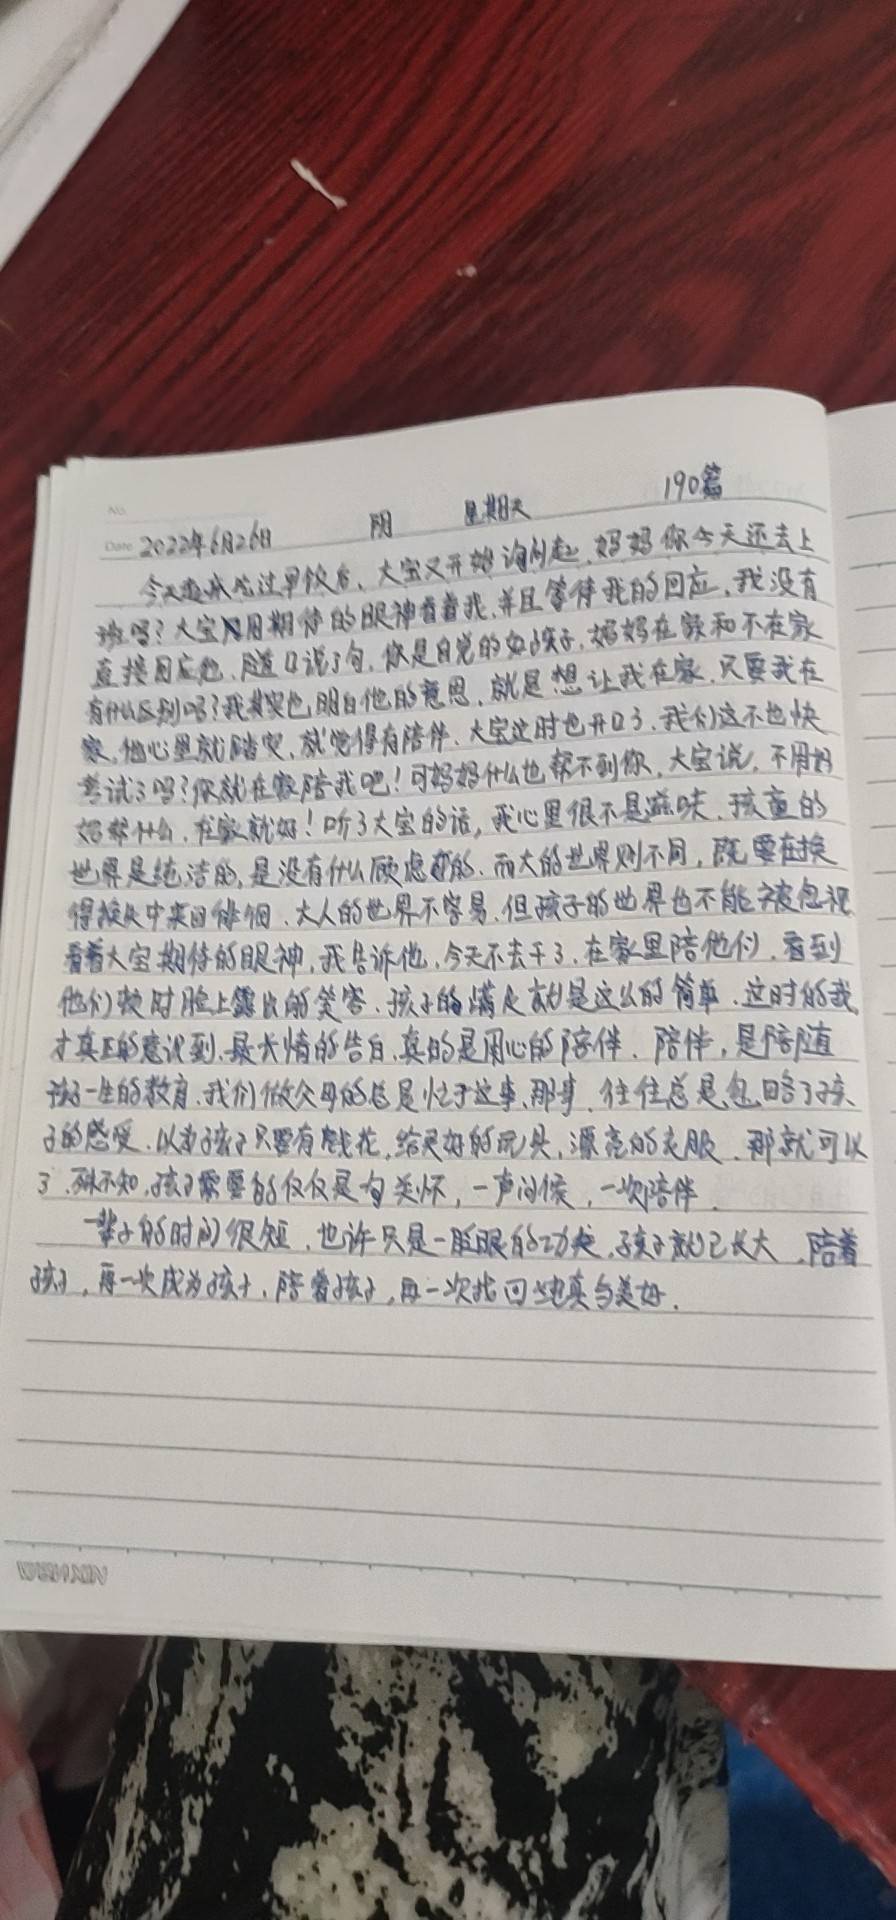 No.
190篇
Date 2022年6月26日 阴 星期天
今天起床吃过早饭后、大宝又开始询问起、妈妈你今天还去上
班吗？大宝用期待的眼神看着我，并且等待我的回应，我没有
直接回应他、随口说了句，你是自觉的好孩子，妈妈在家和不在家
有什么区别吗？我其实也明白他的意思，就是想让我在家，只要我在
家，他心里就踏实，就觉得有陪伴、大宝这时也开口了，我们这不也快
考试了吗？你就在家陪我吧！可妈妈什么也帮不到你，大宝说，不用妈
妈帮什么，在家就好！听了大宝的话，我心里很不是滋味、孩童的
世界是纯洁的，是没有什么顾虑的、而大的世界则不同，既要在换
得失中来回徘徊、大人的世界不容易，但孩子的世界也不能被忽视
看着大宝期待的眼神，我告诉他，今天不去干了，在家里陪他们，看到
他们顿时脸上露出的笑容、孩子的满足就是这么的简单、这时的我
才真正的意识到，最长情的告白，真的是用心的陪伴、陪伴，是陪随
孩子一生的教育、我们做父母的总是忙于这事、那事，往往总是忽略了孩
子的感受、以为孩子只要有钱花，给买好的玩具，漂亮的衣服、那就可以
了、殊不知，孩子需要的仅仅是句关怀，一声问候，一次陪伴、
一辈子的时间很短，也许只是一眨眼的功夫，孩子就已长大，陪着
孩子，再一次成为孩子、陪着孩子，再一次找回纯真与美好、